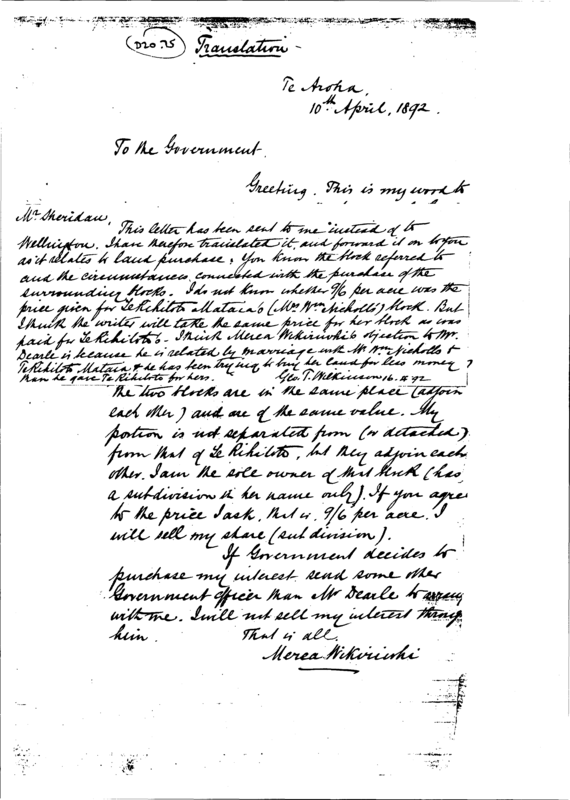 D20.25
Translation -
Te Aroha,
10th April, 1892.
To the Government.
Greeting. This is my word to
Mr Sheridan,
This letter has been sent to me instead of to
Wellington. I have therefore translated it and forward it on to you
as it relates to land purchase. You know the block referred to
and the circumstances connected with the purchase of the
surrounding blocks. I do not know whether 9/6 per acre was the
price given for Te Rihiloto Mataia's (Mrs Wm Nicholls) block. But
I think the writer will take the same price for her block as was
paid for Te Rihiloto's. I think Merea Wikiriwhi's objection to Mr
Dearle is because he is related by marriage with Mr Wm Nicholls &
Te Rihiloto Mataia & he has been trying to buy her land for less money
than he gave Te Rihiloto for hers. Geo T. Wilkinson 16. 92
the two blocks are in the same place (adjoin
each other) and are of the same value. My
portion is not separated from (or detached)
from that of Te Rihiloto, but they adjoin each
other. I am the sole owner of that block (has
a subdivision in her name only). If you agree
to the price I ask, that is, 9/6 per acre, I
will sell my share (subdivision).
If Government decides to
purchase my interest send some other
Government officer than Mr Dearle to arrange
with me. I will not sell my interest through
him. That is all.
Merea Wikiriwhi